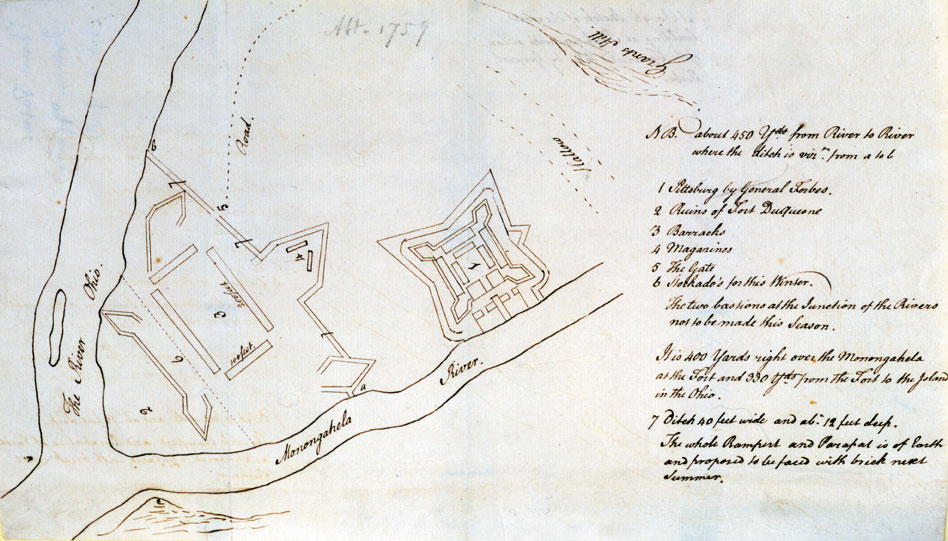 Abt. 1759
Grants Hill
Hallow
Road.
b
7
5
7
4
3
200 feet
100 feet.
6
2
7
a
1
The River Ohio.
Monongahela River.
c
c
N.B. about 450 Yds from River to River
where the ditch is from a to b
1 Pittsburg by General Forbes.
2 Ruins of Fort DuQuesne
3 Barracks
4 Magazines
5 The Gate
6 Stockado's for this Winter.
The two bastions at the Junction of the Rivers
not to be made this Season.
It is 400 Yards right over the Monongahela
at the Fort and 330 Yds from the Fort to the Island
in the Ohio.
7 Ditch 40 feet wide and abt. 12 feet deep.
The whole Rampert and Parapat is of Earth
and proposed to be faced with brick next
Summer.